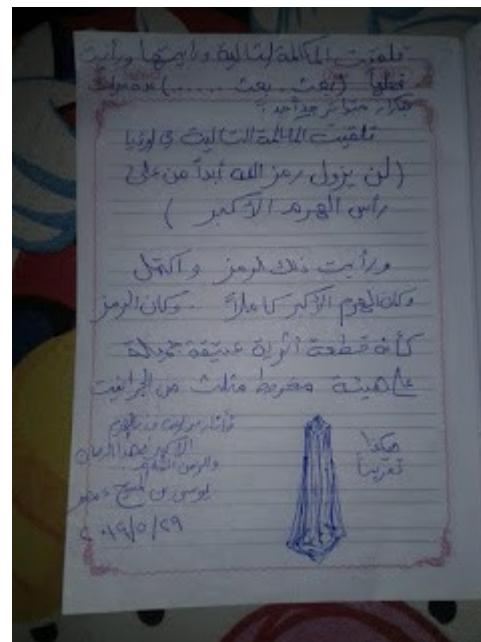 تلقيت المكالمة التالية ورأيت
قبلها (بعث .. بعث ......) عدة مرات
تكرار متواتر جداً جداً :
تلقيت المكالمة التالية في الرؤيا
(لن يزول رمز الله أبداً من على
رأس الهرم الأكبر )
ورأيت ذلك الرمز و اكتمل
وكان الهرم الأكبر كاملاً .. وكان الرمز
كأنه قطعة أثرية عتيقة جميلة
على هيئة مخروط مثلث من الجرانيت
هكذا
تقريباً
الأكبر
والزمن
يوسف بن المسيح مصر
٢٠١٩/٥/٢٩